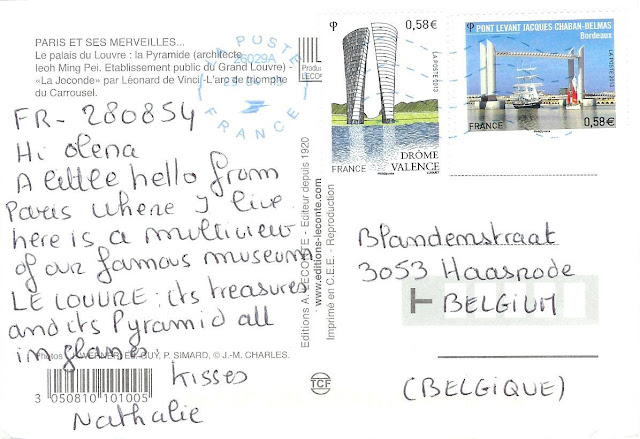 PARIS ET SES MERVEILLES...
Le palais du Louvre : la Pyramide (architecte
Ieoh Ming Pei, Etablissement public du Grand Louvre)
«La Joconde» par Léonard de Vinci -L'arc de triomphe
du Carrousel.
LA POSTE
36029A
FRANCE
FR- 280854
Hi Olena
A little hello from
Paris where I live.
here is a multiview
of our famous museum
LE LOUVRE: its treasures
and its Pyramid all
in glanes.
Kisses
Nathalie
Photos
P. SIMARD, © J.-M. CHARLES.
3 050810 101005
Editions A. LECONTE - Editeur depuis 1920
www.editions-leconte.com
Imprimé en C.E.E. - Reproduction
TCF
0,58€
LA POSTE 2013
DRÔME
VALENCE
FRANCE
PONT LEVANT JACQUES CHABAN-DELMAS
Bordeaux
LA POSTE 2013
FRANCE
0,58€
Blandenstraat
3053 Haasrode
BELGIUM
(BELGIQUE)